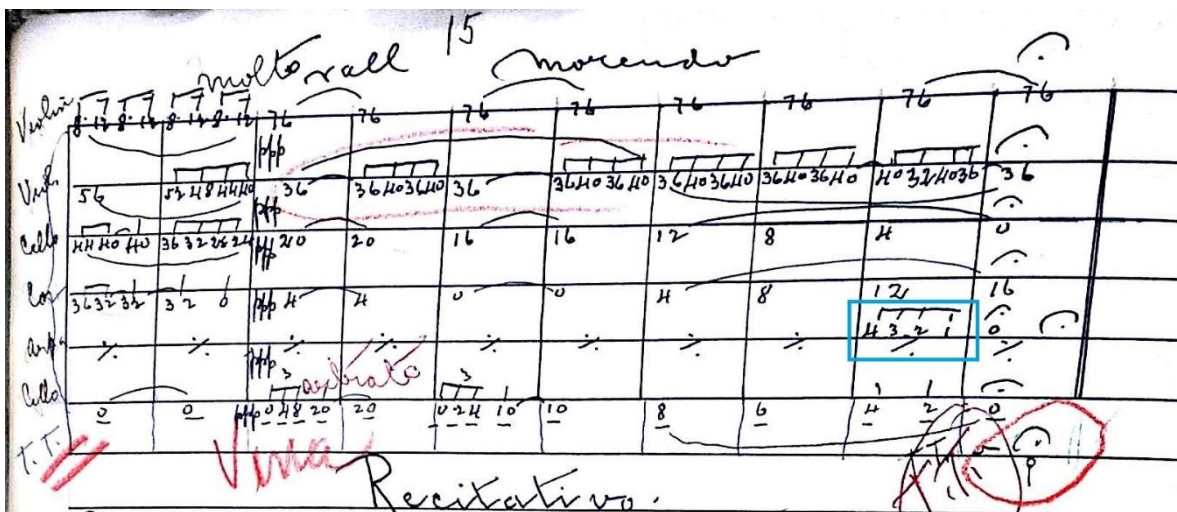 15
molto rall morendo
Violin 8. 12 8. 12 8. 12 8. 12 76 76 76 76 76 76 76 76
ppp
Viola 56 52 48 44 40 36 36 40 36 40 36 36 40 36 40 36 40 36 40 36 40 36 40 40 32 40 36 36
ppp
Cello 44 40 40 36 32 28 24 20 20 16 16 12 8 4 0
ppp
Cor 36 32 32 32 0 ppp 4 4 0 0 4 8 12 16
4 3 2 1 0
arpa ٪ ٪ ٪ ٪ ٪ ٪ ٪ ٪ ٪ ٪
ppp 3 vibrato 3
Cello 0 0 ppp 0 48 20 20 0 24 10 10 8 6 4 2 0
T.T.
Recitativo.